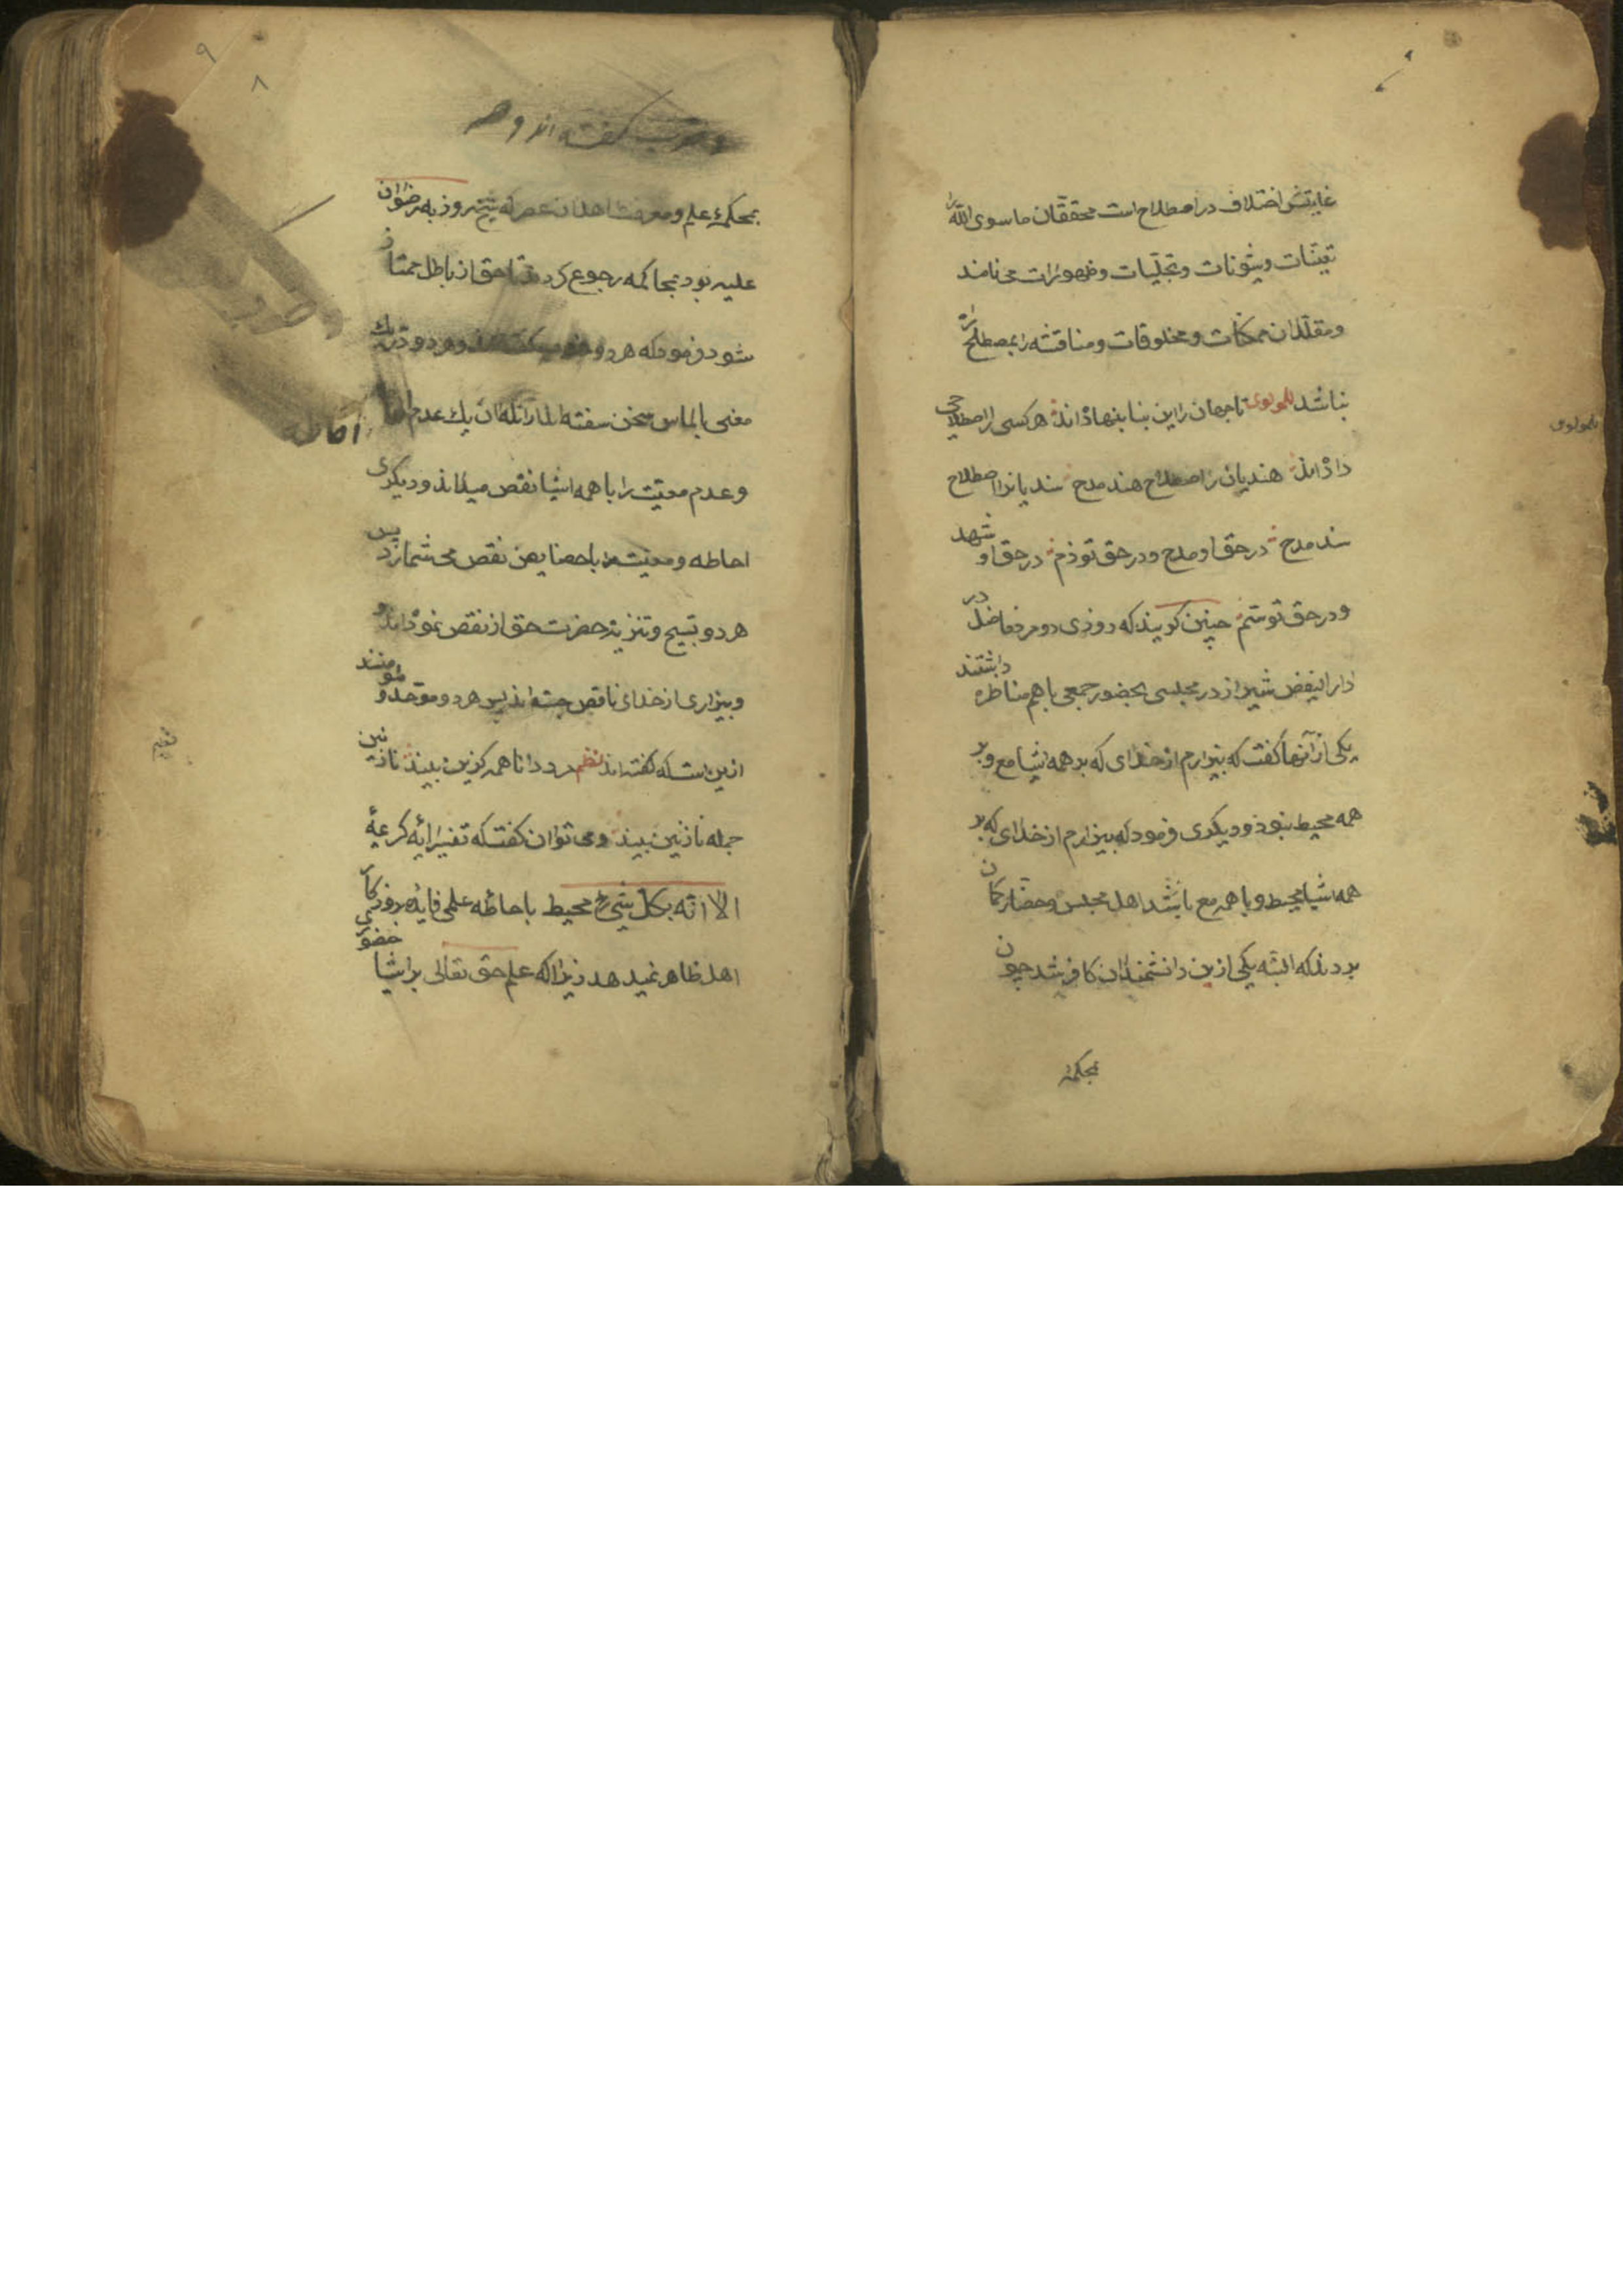 غایتش اختلاف در اصطلاح است محققان ما سوی الله را
تعینات و شئونات و تجلیات و ظهورات می نامند
و مقلدان ممکنات و مخلوقات و مناقشه را بمصطلح
نباشد للمولوی تا جهان را این بنا بنهاده اند هر کسی را اصطلاحی
داده اند هندیان را اصطلاح هند مدح سندیانرا اصطلاح
سند مدح در حق او مدح و در حق تو ذم در حق او شهد
و در حق تو ستم چنین کویند که روزی دو مرد فاضل در
دار الفیض شیراز در مجلسی بحضور جمعی با هم مناظره داشتند
یکی از آنها کفت که بیزارم از خدای که بر همه اشیا مع و بر
همه محیط نبود و دیکری فرمود که بیزارم از خدای که بر
همه اشیا محیط و با همه مع باشد اهل مجلس و حضار کمان
بردند که البته یکی ازین دانشمندان کافر شد چون
بمحک
للمولوی
۹
۸
خوب کفته اند و هر
بمحک علم و معرفت اهل ان عصر که شیخ روز به رضوان
علیه بود بمحاکمه رجوع کردند تا حق از باطل ممتاز
شود فرمود که هر دو خوب کفته اند و هر دو در یک
معنی بالماس سخن سفته اند زانکه ان یک عدم احاطه
احاطه
و عدم معیت را با همه اشیا نقص میداند و دیکری
احاطه و معیت را با بعضا یعن نقص می شمارد پس
هر دو تسبیح و تنزیه حضرت حق از نقص نموده اند و
و بیزاری از خدای ناقص جسته اند پس هر دو موحد و مؤمنند
ازین است که کفته اند نظم مرد دانا همه کزین بیند نازنین
جمله نازنین بیند و می توان کفت که تفسیر ایه کریمهٔ
الا انه بکل شیء محیط باحاطه علمی فایده بر فرد کاس
اهل ظاهر نمیدهد زیرا که علم حق تعالی بر اشیا حضور
نظم